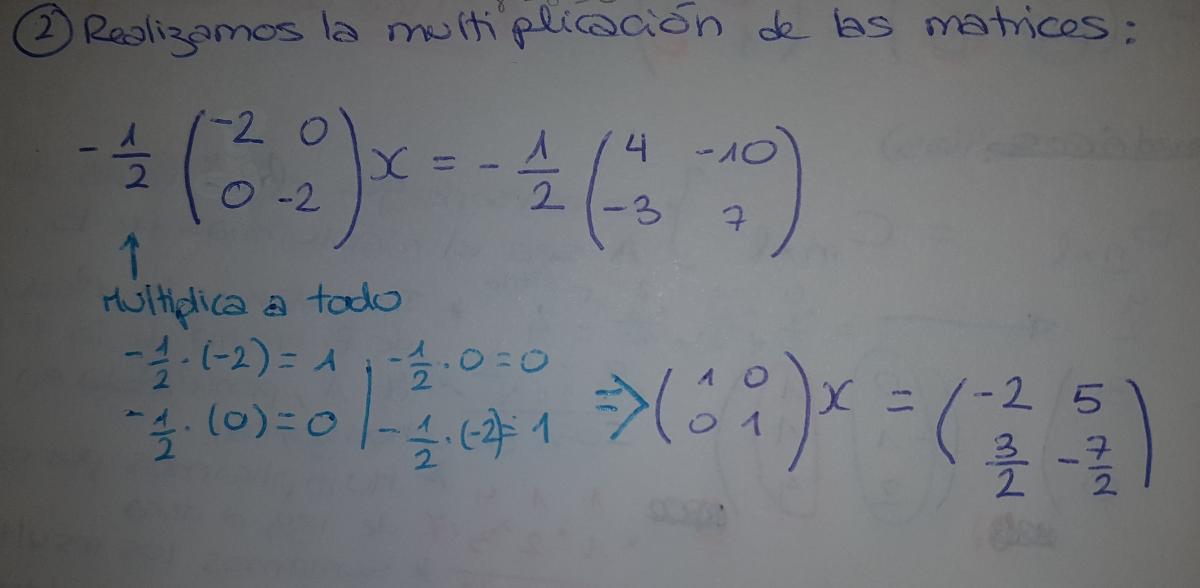 ② Realizamos la multiplicación de las matrices:
-1/2 (-2 0; 0 -2) x = -1/2 (4 -10; -3 7)
↑
Multiplica a todo
-1/2 · (-2) = 1 | -1/2 · 0 = 0
-1/2 · (0) = 0 | -1/2 · (-2) = 1
⇒ (1 0; 0 1) x = (-2 5; 3/2 -7/2)